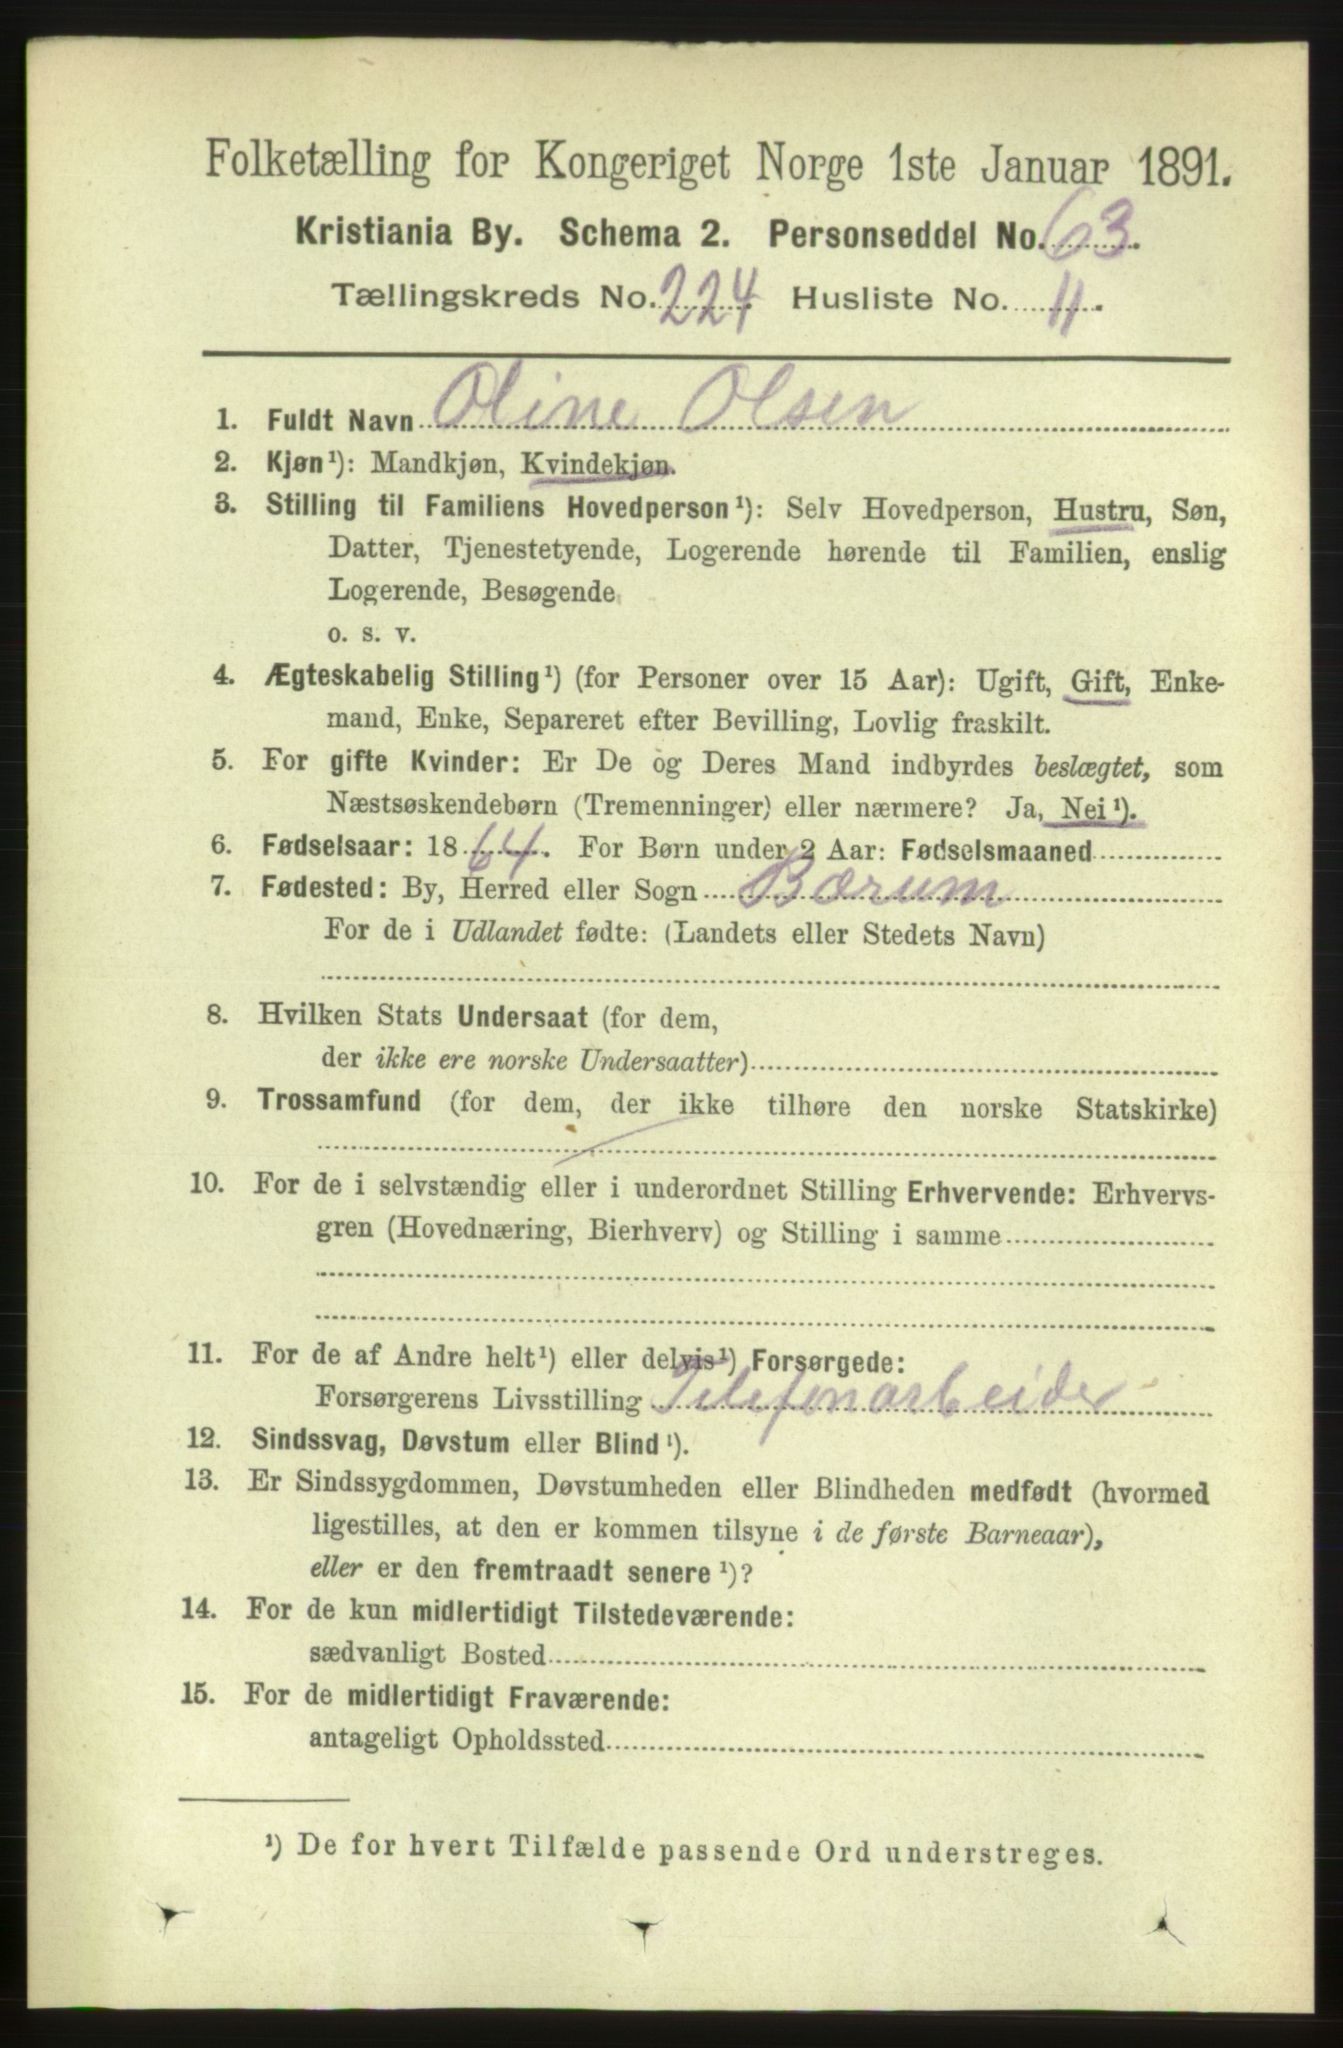 Folketælling for Kongeriget Norge 1ste Januar 1891.
Kristiania By. Schema 2. Personseddel No. 63.
Tællingskreds No. 224 Husliste No. 11.
1. Fuldt Navn Oline Olsen
2. Kjøn¹): Mandkjøn, Kvindekjøn.
3. Stilling til Familiens Hovedperson¹): Selv Hovedperson, Hustru, Søn,
Datter, Tjenestetyende, Logerende hørende til Familien, enslig
Logerende, Besøgende
o. s. v.
4. Ægteskabelig Stilling¹) (for Personer over 15 Aar): Ugift, Gift, Enke-
mand, Enke, Separeret efter Bevilling, Lovlig fraskilt.
5. For gifte Kvinder: Er De og Deres Mand indbyrdes beslægtet, som
Næstsøskendebørn (Tremenninger) eller nærmere? Ja, Nei¹).
6. Fødselsaar: 1864. For Børn under 2 Aar: Fødselsmaaned
7. Fødested: By, Herred eller Sogn Bærum
For de i Udlandet fødte: (Landets eller Stedets Navn)
8. Hvilken Stats Undersaat (for dem,
der ikke ere norske Undersaatter)
9. Trossamfund (for dem, der ikke tilhøre den norske Statskirke)
10. For de i selvstændig eller i underordnet Stilling Erhvervende: Erhvervs-
gren (Hovednæring, Bierhverv) og Stilling i samme
11. For de af Andre helt¹) eller delvis¹) Forsørgede:
Forsørgerens Livsstilling Telefonarbeider
12. Sindssvag, Døvstum eller Blind¹).
13. Er Sindssygdommen, Døvstumheden eller Blindheden medfødt (hvormed
ligestilles, at den er kommen tilsyne i de første Barneaar),
eller er den fremtraadt senere¹)?
14. For de kun midlertidigt Tilstedeværende:
sædvanligt Bosted
15. For de midlertidigt Fraværende:
antageligt Opholdssted
¹) De for hvert Tilfælde passende Ord understreges.